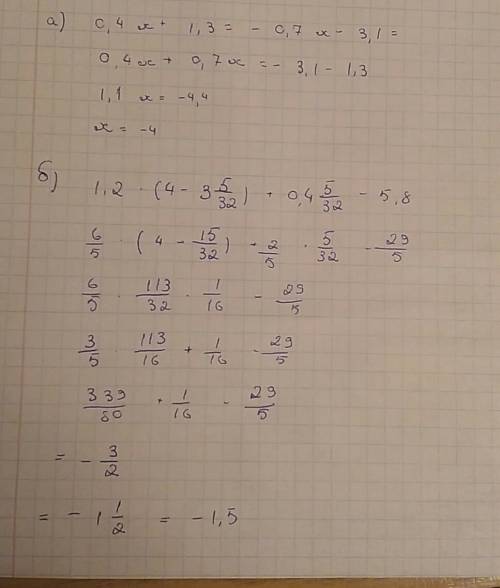 а) 0,4x + 1,3 = - 0,7x - 3,1 =
0,4x + 0,7x = - 3,1 - 1,3
1,1 x = -4,4
x = -4
б) 1,2 · (4 - 3 5/32) + 0,4 5/32 - 5,8
6/5 · (4 - 15/32) - 2/5 · 5/32 - 29/5
6/5 · 113/32 · 1/16 - 29/5
3/5 · 113/16 + 1/16 - 29/5
339/80 + 1/16 - 29/5
= - 3/2
= - 1 1/2 = -1,5